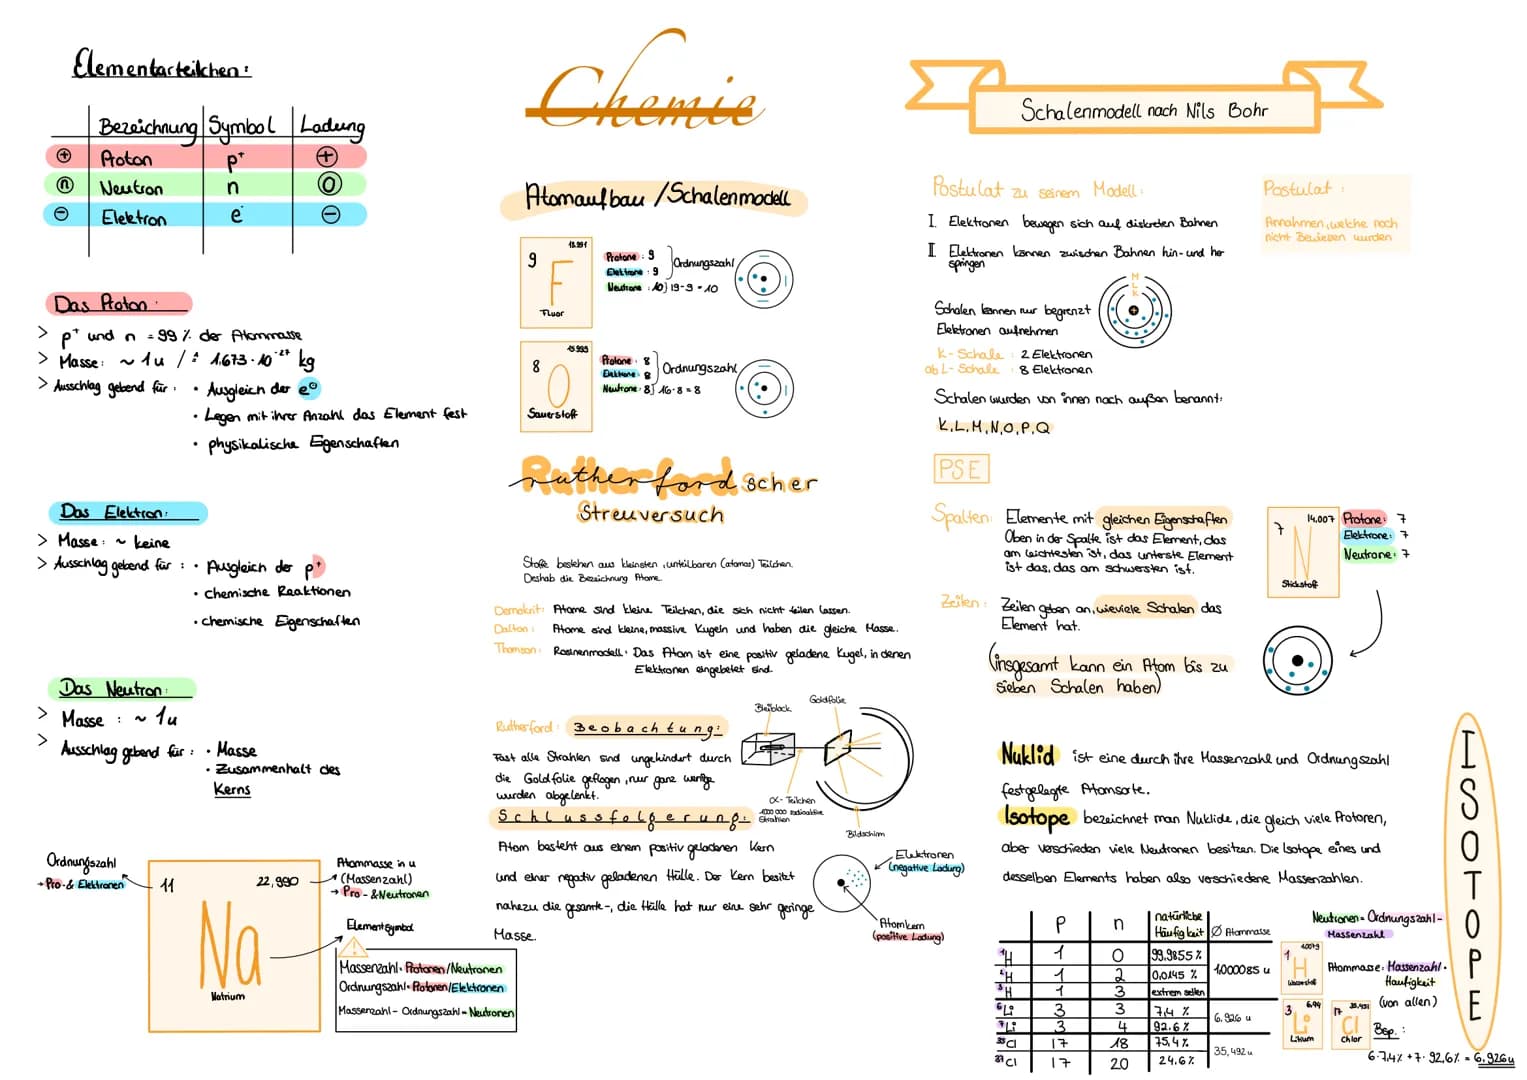 Elementarteilchen:
Bezeichnung Symbol Ladung
⊕ Proton p⁺ ⊕
ⓝ Neutron n 0
⊖ Elektron e⁻ ⊖
Das Proton:
> p⁺ und n = 99 % der Atommasse
> Masse: ~ 1u / ≙ 1,673 · 10⁻²⁷ kg
> Ausschlag gebend für: • Ausgleich der e⊖
• Legen mit ihrer Anzahl das Element fest
• physikalische Eigenschaften
Das Elektron:
> Masse: ~ keine
> Ausschlag gebend für: • Ausgleich der p⁺
• chemische Reaktionen
• chemische Eigenschaften
Das Neutron:
> Masse: ~ 1u
> Ausschlag gebend für: • Masse
• Zusammenhalt des
Kerns
Ordnungszahl
→ Pro- & Elektronen
11 22,990
Na
Natrium
Atommasse in u
(Massenzahl)
→ Pro- & Neutronen
Elementsymbol
!
Massenzahl = Protonen/Neutronen
Ordnungszahl = Protonen/Elektronen
Massenzahl - Ordnungszahl = Neutronen
Chemie
Atomaufbau /Schalenmodell
9
F
Fluor
Protone: 9
Elektrone: 9
Ordnungszahl
Neutrone: 10} 19-9 = 10
8 15.999
O
Sauerstoff
Protone: 8
Elektrone: 8
Ordnungszahl
Neutrone: 8} 16-8 = 8
Rutherfordscher
Streuversuch
Stoffe bestehen aus kleinsten, unteilbaren (atomos) Teilchen.
Deshab die Bezeichnung Atome.
Demokrit: Atome sind kleine Teilchen, die sich nicht teilen lassen.
Dalton: Atome sind kleine, massive Kugeln und haben die gleiche Masse.
Thomson: Rosinenmodell: Das Atom ist eine positiv geladene Kugel, in denen
Elektronen eingebetet sind.
Rutherford: Beobachtung:
Fast alle Strahlen sind ungehindert durch
die Goldfolie geflogen, nur ganz wenige
wurden abgelenkt.
Bleiblock
Goldfolie
α- Teilchen
1000 000 radioaktive
Strahlen
Bildschirm
Schlussfolgerung:
Atom besteht aus einem positiv geladenen Kern
und einer negativ geladenen Hülle. Der Kern besitzt
nahezu die gesamte-, die Hülle hat nur eine sehr geringe
Masse.
Elektronen
(negative Ladung)
Atomkern
(positive Ladung)
Schalenmodell nach Nils Bohr
Postulat zu seinem Modell:
I. Elektronen bewegen sich auf diskreten Bahnen
II. Elektronen können zwischen Bahnen hin- und her
springen
Postulat:
Annahmen, welche noch
nicht Bewiesen wurden
Schalen können nur begrenzt
Elektronen aufnehmen
M
L
K
K-Schale: 2 Elektronen
ab L-Schale: 8 Elektronen
Schalen wurden von innen nach außen benannt:
K, L, M, N, O, P, Q
PSE
Spalten: Elemente mit gleichen Eigenschaften
Oben in der Spalte ist das Element, das
am leichtesten ist, das unterste Element
ist das, das am schwersten ist.
Zeilen: Zeilen geben an, wieviele Schalen das
Element hat.
(insgesamt kann ein Atom bis zu
sieben Schalen haben)
7 14.007
N
Stickstoff
Protone: 7
Elektrone: 7
Neutrone: 7
Nuklid ist eine durch ihre Massenzahl und Ordnungszahl
festgelegte Atomsorte.
Isotope bezeichnet man Nuklide, die gleich viele Protonen,
aber verschieden viele Neutronen besitzen. Die Isotope eines und
desselben Elements haben also verschiedene Massenzahlen.
ISOTOPE
p n natürliche Häufigkeit Ø Atommasse
¹H 1 0 99,9855 %
²H 1 2 0,0145 % 1,000085 u
³H 1 3 extrem selten
⁶Li 3 3 7,4 %
⁷Li 3 4 92.6 % 6,926 u
³⁵Cl 17 18 75,4 %
³⁷Cl 17 20 24.6 % 35,492 u
Neutronen = Ordnungszahl -
Massenzahl
1 1.0079
H
Wasserstoff
Atommasse: Massenzahl ·
Häufigkeit
(von allen)
3 6.94
Li
Litium
17 35,451
Cl
Chlor
Bsp.:
6 · 7,4% + 7 · 92,6% = 6,926u